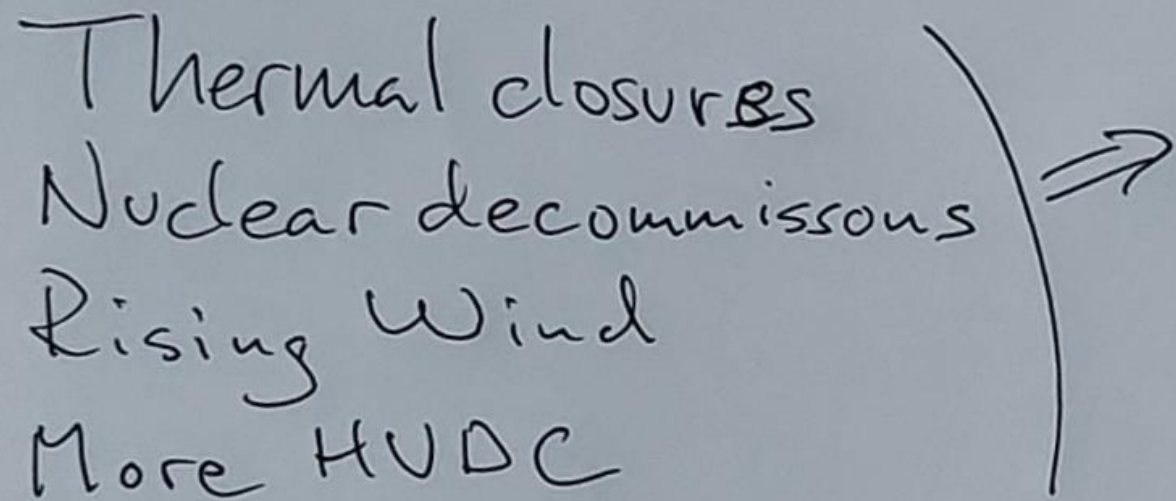 Thermal closures
Nuclear decommissons
Rising Wind
More HVDC